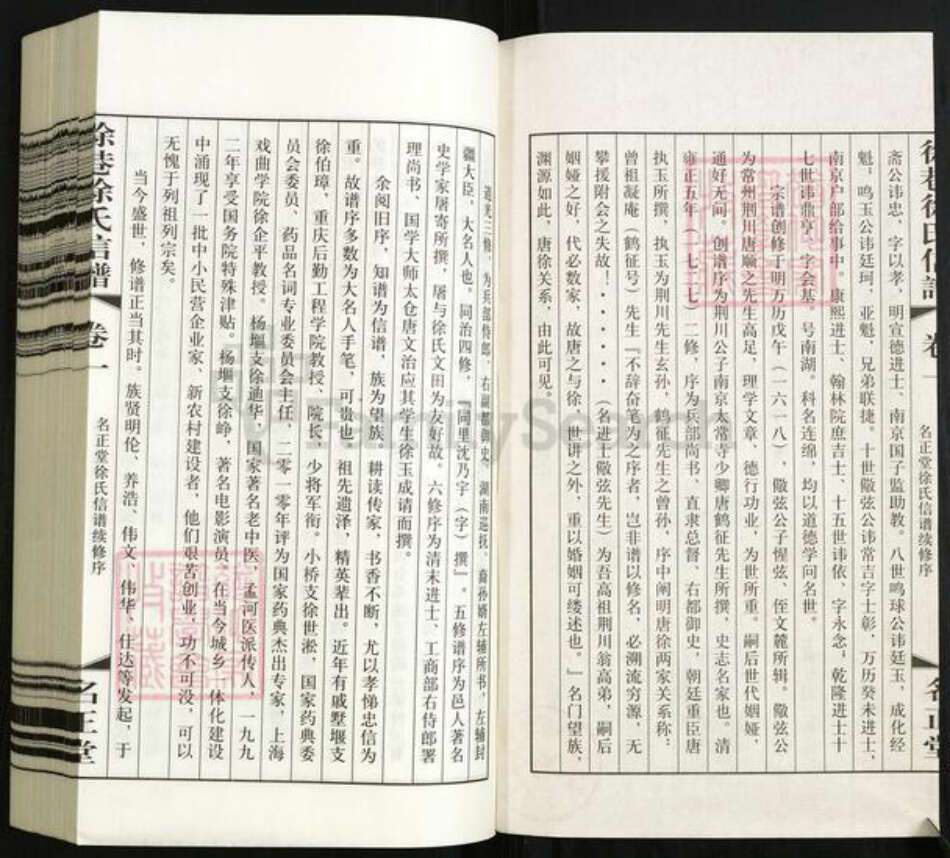 徐巷徐氏信谱 卷一 名正堂徐氏信谱续修序 名正堂
斋公讳忠，字以孝，明宣德进士、南京国子监助教。八世鸣球公讳廷玉，成化经
魁；鸣玉公讳廷珂，亚魁，兄弟联捷。十世儆弦公讳常吉字士彰，万历癸未进士，
南京户部给事中。康熙进士、翰林院庶吉士、十五世讳依，字永念；乾隆进士十
七世讳鼎亨，字会基。号南湖。科名连绵，均以道德学问名世。
宗谱创修于明万历戊午（一六一八），儆弦公子惺弦、侄文麓所辑。儆弦公
为常州荆川唐顺之先生高足，理学文章，德行功业，为世所重。嗣后世代姻娅，
通好无间。创谱序为荆川公子南京太常寺少卿唐鹤征先生所撰，史志名家也。清
雍正五年（一七二七）二修，序为兵部尚书、直隶总督、右都御史，朝廷重臣唐
执玉所撰，执玉为荆川先生玄孙，鹤征先生之曾孙，序中阐明唐徐两家关系称：
曾祖凝庵（鹤征号）先生『不辞奋笔为之序者，岂非谱以修名，必溯流穷源，无
攀援附会之失故！······（名进士儆弦先生）为吾高祖荆川翁高弟，嗣后
姻娅之好，代必数家，故唐之与徐，世讲之外，重以婚姻可缕述也。』名门望族，
渊源如此，唐徐关系，由此可见。
道光三修，为兵部侍郎，右副都御史，湖南巡抚，裔孙婿左辅所书，左辅封
疆大臣，大名人也。同治四修，『同里沈乃宇（字）撰』。五修谱序为邑人著名
史学家屠寄所撰，屠与徐氏文田为友好故。六修序为清末进士、工商部右侍郎署
理尚书、国学大师太仓唐文治应其学生徐玉成请而撰。
余阅旧序，知谱为信谱，族为望族。耕读传家，书香不断，尤以孝悌忠信为
重。故谱序多数为大名人手笔，可贵也。祖先遗泽，精英辈出。近年有戚墅堰支
徐伯璋，重庆后勤工程学院教授、院长，少将军衔。小桥支徐世淞，国家药典委
员会委员、药品名词专业委员会主任，二零一零年评为国家药典杰出专家，上海
戏曲学院徐企平教授。杨堰支徐迪华，国家著名老中医，孟河医派传人，一九九
二年享受国务院特殊津贴。杨堰支徐峥，著名电影演员。在当今城乡一体化建设
中涌现了一批中小民营企业家、新农村建设者，他们艰苦创业，功不可没，可以
无愧于列祖列宗矣。
当今盛世，修谱正当其时。族贤明伦、养浩、伟文、伟华、仕达等发起，于
徐巷徐氏信谱 卷一 名正堂徐氏信谱续修序 名正堂
FamilySearch